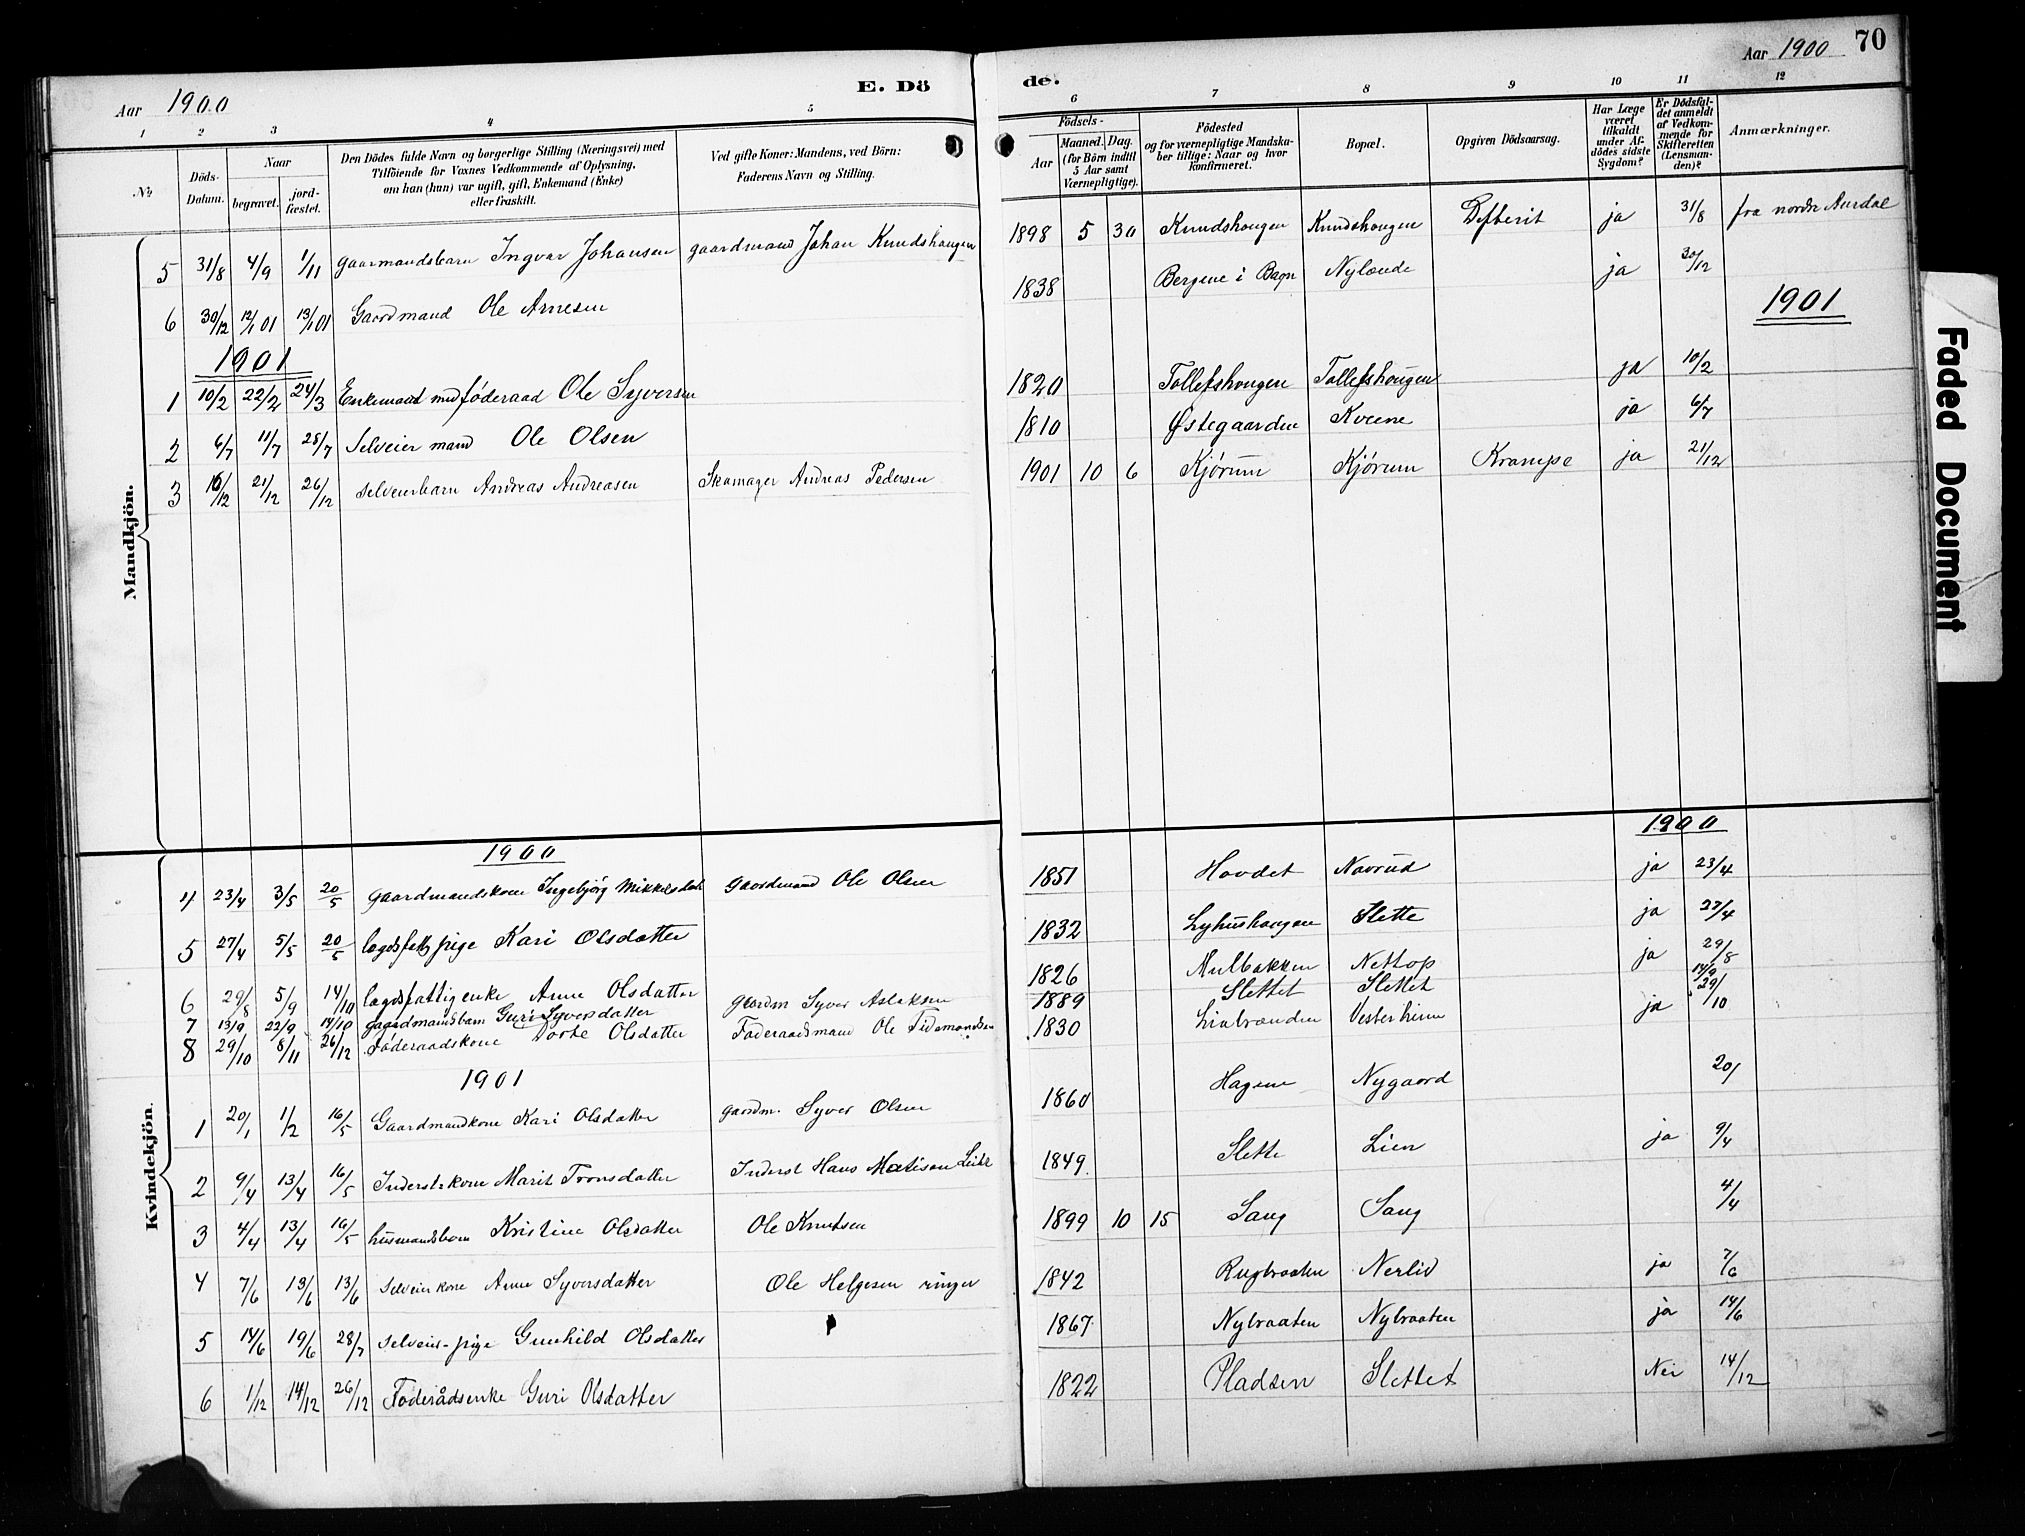 Aar 1900 E. Dö de. Aar 1900 70
1 2 3 4 5 6 7 8 9 10 11 12
No.
Döds-Datum.
Naar
begravet.
jord-fæstet.
Den Dödes fulde Navn og borgerlige Stilling (Næringsvei) med
Tilföiende for Voxnes Vedkommende af Oplysning,
om han (hun) var ugift, gift, Enkemand (Enke)
eller fraskilt.
Ved gifte Koner: Mandens, ved Börn:
Faderens Navn og Stilling.
Födsels-
Aar
Maaned. Dag.
(for Börn indtil
5 Aar samt
Værnepligtige).
Födested
og for værnepligtige Mandska-
ber tillige: Naar og hvor
konfirmeret.
Bopæl.
Opgiven Dödsaarsag.
Har Læge
været
tilkaldt
under Af-
dödes sidste
Sygdom?
Er Dödsfal-
det anmeldt
af Vedkom-
mende for
Skifteretten
(Lensman-
den)?
Anmærkninger.
Mandkjön.
5 31/8 4/9 1/11 gaarmandsbarn Ingvar Johansen gaardmand Johan Knudshaugen 1898 5 30 Knudshougen Knudshougen Defterit ja 31/8 fra nordre Aurdal
6 30/12 12/1 01 13/1 01 Gaardmand Ole Arnesen 1838 Bergene i Bagn Nylænde ja 30/12
1901 1901
1 10/2 22/2 24/3 Enkemand med føderaad Ole Syversen 1820 Tollefshougen Tollefshougen ja 10/2
2 6/7 11/7 28/7 Selveier mand Ole Olsen 1810 Østegaarden Kveene ja 6/7
3 16/12 21/12 26/12 selveierbarn Andreas Andreasen Skomager Andreas Pedersen 1901 10 6 Kjørum Kjørum Krampe ja 21/12
Kvindekjön.
1900 1900
4 23/4 3/5 20/5 gaardmandskone Ingebjørg Mikkelsdatt gaardmand Ole Olsen 1851 Hovdet Navrud ja 23/4
5 27/4 5/5 20/5 lægdsfatt. pige Kari Olsdatter 1832 Lyhushaugen Slette ja 27/4
6 29/8 5/9 14/10 lægdsfattig enke Anne Olsdatter 1826 Mulbakken Nettop ja 29/8
7 13/9 22/9 14/10 gaardmandsbarn Guri Syversdatter gaardm Syver Aslaksen 1889 Slettet Slettet 14/9
8 29/10 8/11 26/12 Føderaadskone Dorte Olsdatter Føderaadsmand Ole Tidemandsen 1830 Liabrænden Vesterheim ja 29/10
1901
1 20/1 1/2 16/5 Gaardmandkone Kari Olsdatter gaardm. Syver Olsen 1860 Hagene Nygaard 20/
2 9/4 13/4 16/5 Inderstkone Marit Tronsdatter Inderst Hans Matison 1849 Slette Lien ja 9/4
3 4/4 13/4 16/5 husmandsbarn Kristine Olsdatter Ole Knutsen 1899 10 15 Sang Sang 4/4
4 7/6 13/6 13/6 selveierkone Anne Syversdatter Ole Helgesen ringer 1842 Rugbraaten Nerlid ja 7/6
5 14/6 19/6 28/7 selveier-pige Gunhild Olsdatter 1867 Nybraaten Nybraaten ja 14/6
6 1/12 14/12 26/12 Føderådsenke Guri Olsdatter 1822 Pladsen Slettet Nei 14/12
Faded Document